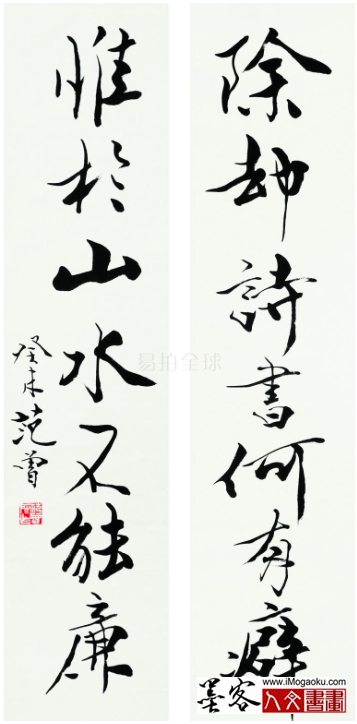 除却詩書何有癖
惟於山水不能廉
癸未 范曾
易拍全球
www.iMogaoku.com
墨客
人文書畫